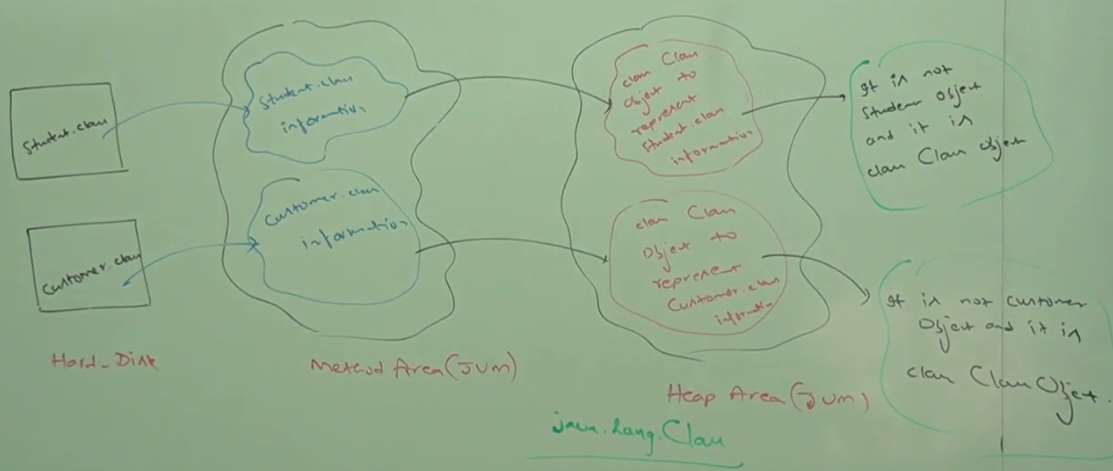 Student.class
Customer.class
Hard_Disk
Student.class
information
Customer.class
information
Method Area (JVM)
class Class
Object to
represent
Student.class
information
class Class
Object to
represent
Customer.class
information
Heap Area (JVM)
java.lang.Class
It is not
Student Object
and it is
class Class Object
It is not Customer
Object and it is
class Class Object.